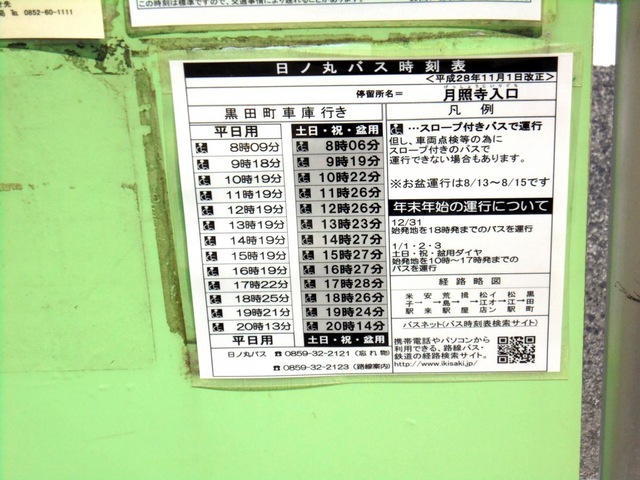 ℡ 0852-60-1111
日ノ丸バス時刻表
<平成28年11月1日改正>
停留所名＝ 月照寺入口
黒田町車庫行き
平日用 土日・祝・盆用
8時09分 8時06分
9時18分 9時19分
10時19分 10時22分
11時19分 11時26分
12時19分 12時26分
13時19分 13時23分
14時19分 14時27分
15時19分 15時27分
16時19分 16時27分
17時22分 17時28分
18時25分 18時26分
19時21分 19時24分
20時13分 20時14分
平日用 土日・祝・盆用
日ノ丸バス ☎0859-32-2121 (忘れ物)
☎0859-32-2123 (路線案内)
凡 例
…スロープ付きバスで運行
但し、車両点検等の為に
スロープ付きのバスで
運行できない場合もあります。
※お盆運行は8/13～8/15です
年末年始の運行について
12/31
始発地を18時発までのバスを運行
1/1・2・3
土日・祝・盆用ダイヤ
始発地を10時～17時発までの
バスを運行
経 路 略 図
米子駅→安来→荒島駅→揖屋→松江イオン→松江駅→黒田町
バスネット(バス時刻表検索サイト)
携帯電話やパソコンから
利用できる、路線バス・
鉄道の経路検索サイト。
http://www.ikisaki.jp/